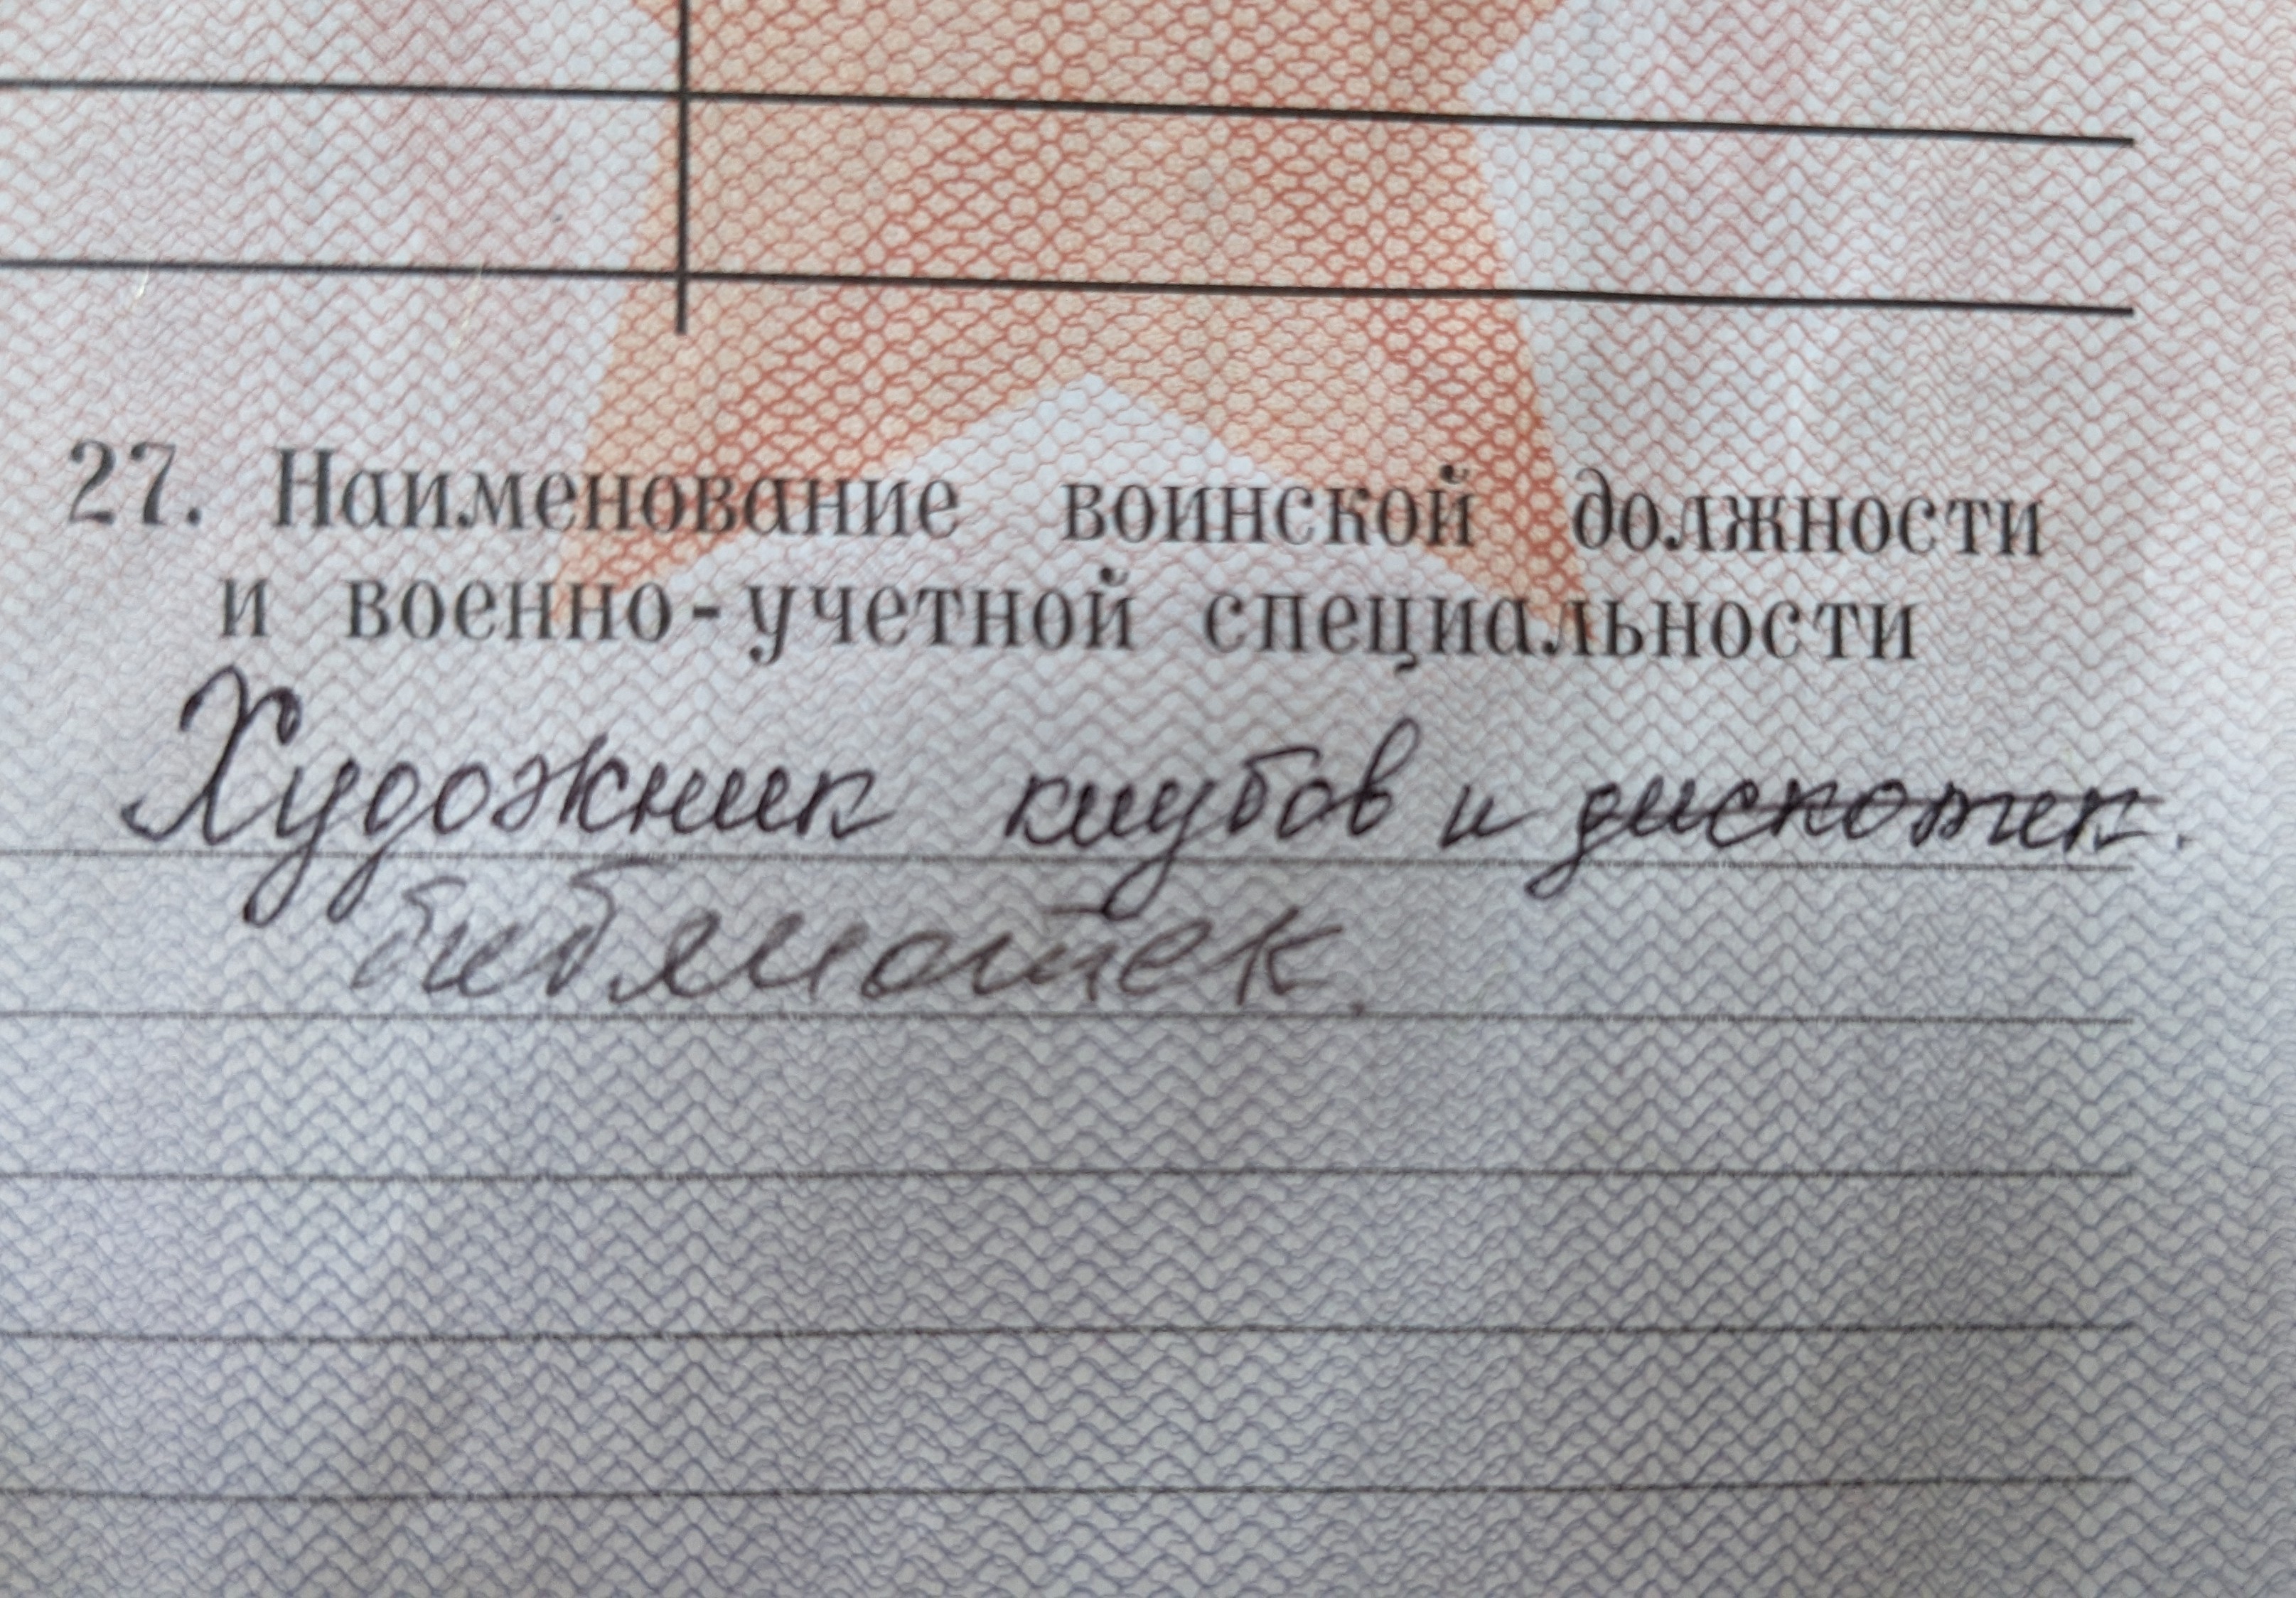 27. Наименование воинской должности
и военно-учетной специальности
Художник клубов и дискотек.
библиотек.